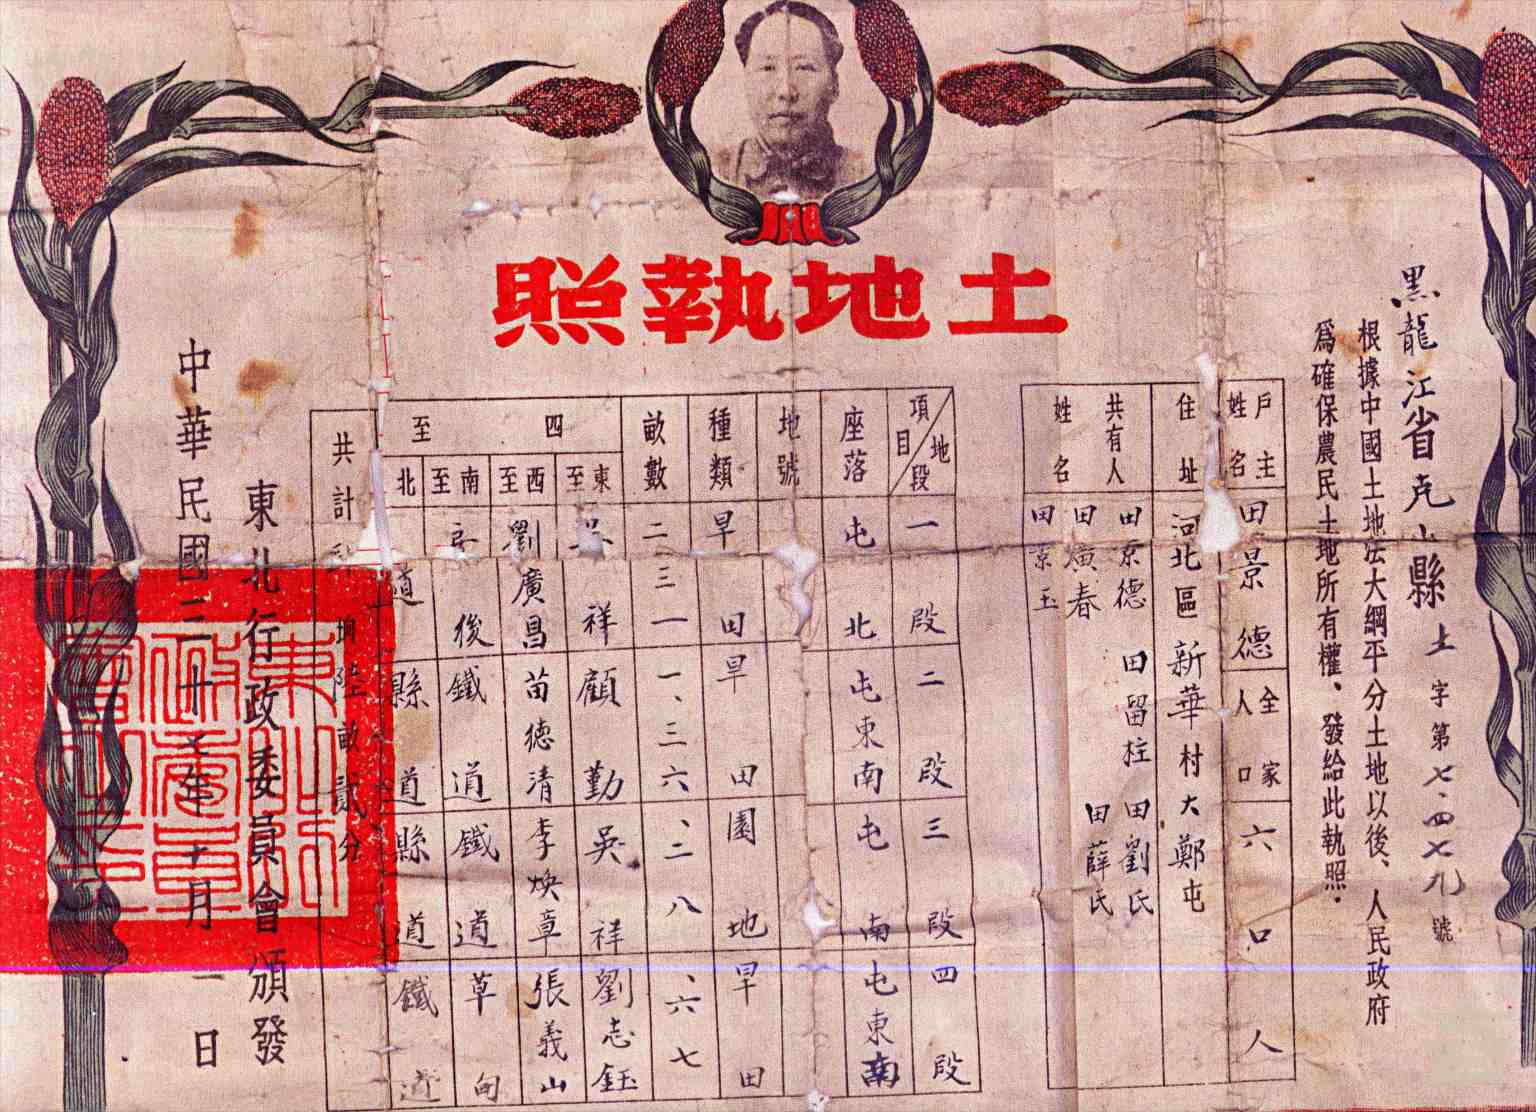 土地執照
黑龍江省克山縣土字第七四七九號
根據中國土地法大綱平分土地以後、人民政府
爲確保農民土地所有權、發給此執照．
戶主姓名
田景德
全家人口
六口人
住址
河北區新華村大鄭屯
共有人姓名
田景德 田留柱 田劉氏
田廣春 田薛氏
田景玉
項目 地段
一段 二段 三段 四段
座落
屯北 屯東南 屯南 屯東南
地號
種類
旱田 旱田 園地 旱田
畝數
二三一 一、三六 、二八 、六七
四至
東至
吳祥 顧勤 吳祥 劉志鈺
西至
劉廣昌 苗德清 李煥章 張義山
南至
後 鐵道 鐵道 草甸
北至
道 縣道 縣道 鐵道
共計 坰陸畝貳分
東北行政委員會頒發
中華民國三十七年十月一日
東北行政委員會之印